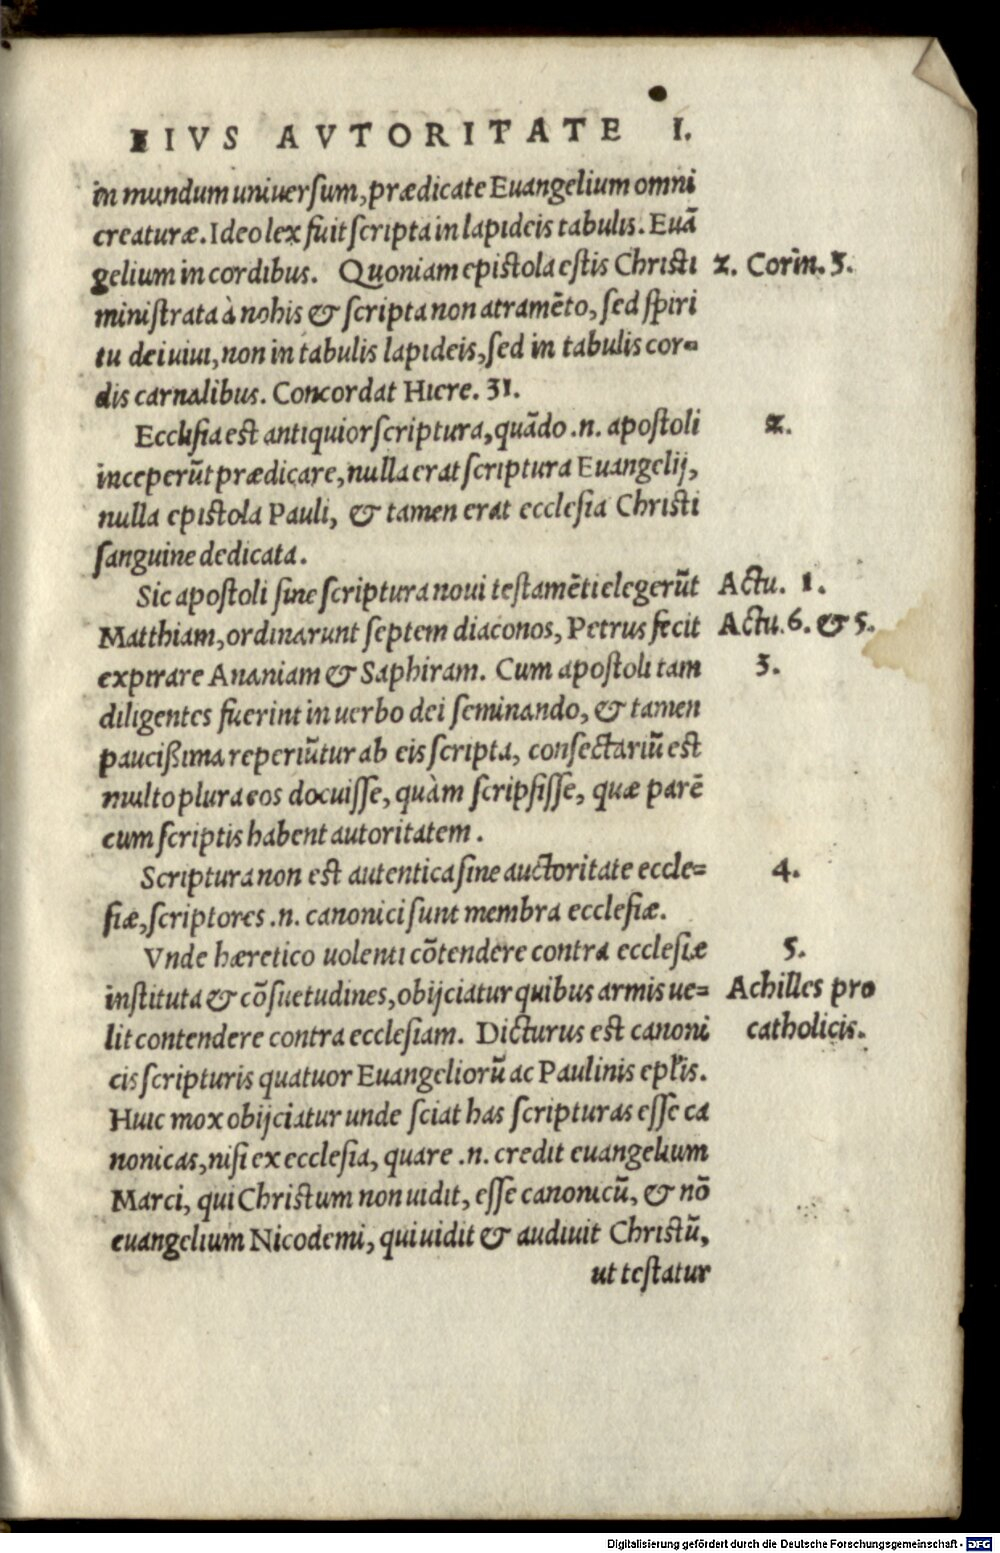 EIVS AVTORITATE I.
in mundum uniuersum, prædicate Euangelium omni
creaturæ. Ideo lex fuit scripta in lapideis tabulis. Euã
gelium in cordibus. Quoniam epistola estis Christi
2. Corin. 3.
ministrata à nobis & scripta non atramẽto, sed spiri
tu dei uiui, non in tabulis lapideis, sed in tabulis cor=
dis carnalibus. Concordat Hiere. 31.
Ecclesia est antiquior scriptura, quãdo .n. apostoli
2.
inceperũt prædicare, nulla erat scriptura Euangelij,
nulla epistola Pauli, & tamen erat ecclesia Christi
sanguine dedicata.
Sic apostoli sine scriptura noui testamẽti elegerũt
Actu. 1.
Matthiam, ordinarunt septem diaconos, Petrus fecit
Actu. 6. & 5.
expirare Ananiam & Saphiram. Cum apostoli tam
3.
diligentes fuerint in uerbo dei seminando, & tamen
paucißima reperiũtur ab eis scripta, consectariũ est
multo plura eos docuisse, quàm scripsisse, quæ parẽ
cum scriptis habent autoritatem.
Scriptura non est autentica sine auctoritate eccle=
4.
siæ, scriptores .n. canonici sunt membra ecclesiæ.
Vnde hæretico uolenti cõtendere contra ecclesiæ
5.
instituta & cõsuetudines, obijciatur quibus armis ue=
Achilles pro
lit contendere contra ecclesiam. Dicturus est canoni
catholicis.
cis scripturis quatuor Euangeliorũ ac Paulinis epl̃is.
Huic mox obijciatur unde sciat has scripturas esse ca
nonicas, nisi ex ecclesia, quare .n. credit euangelium
Marci, qui Christum non uidit, esse canonicũ, & nõ
euangelium Nicodemi, qui uidit & audiuit Christũ,
ut testatur
Digitalisierung gefördert durch die Deutsche Forschungsgemeinschaft - DFG